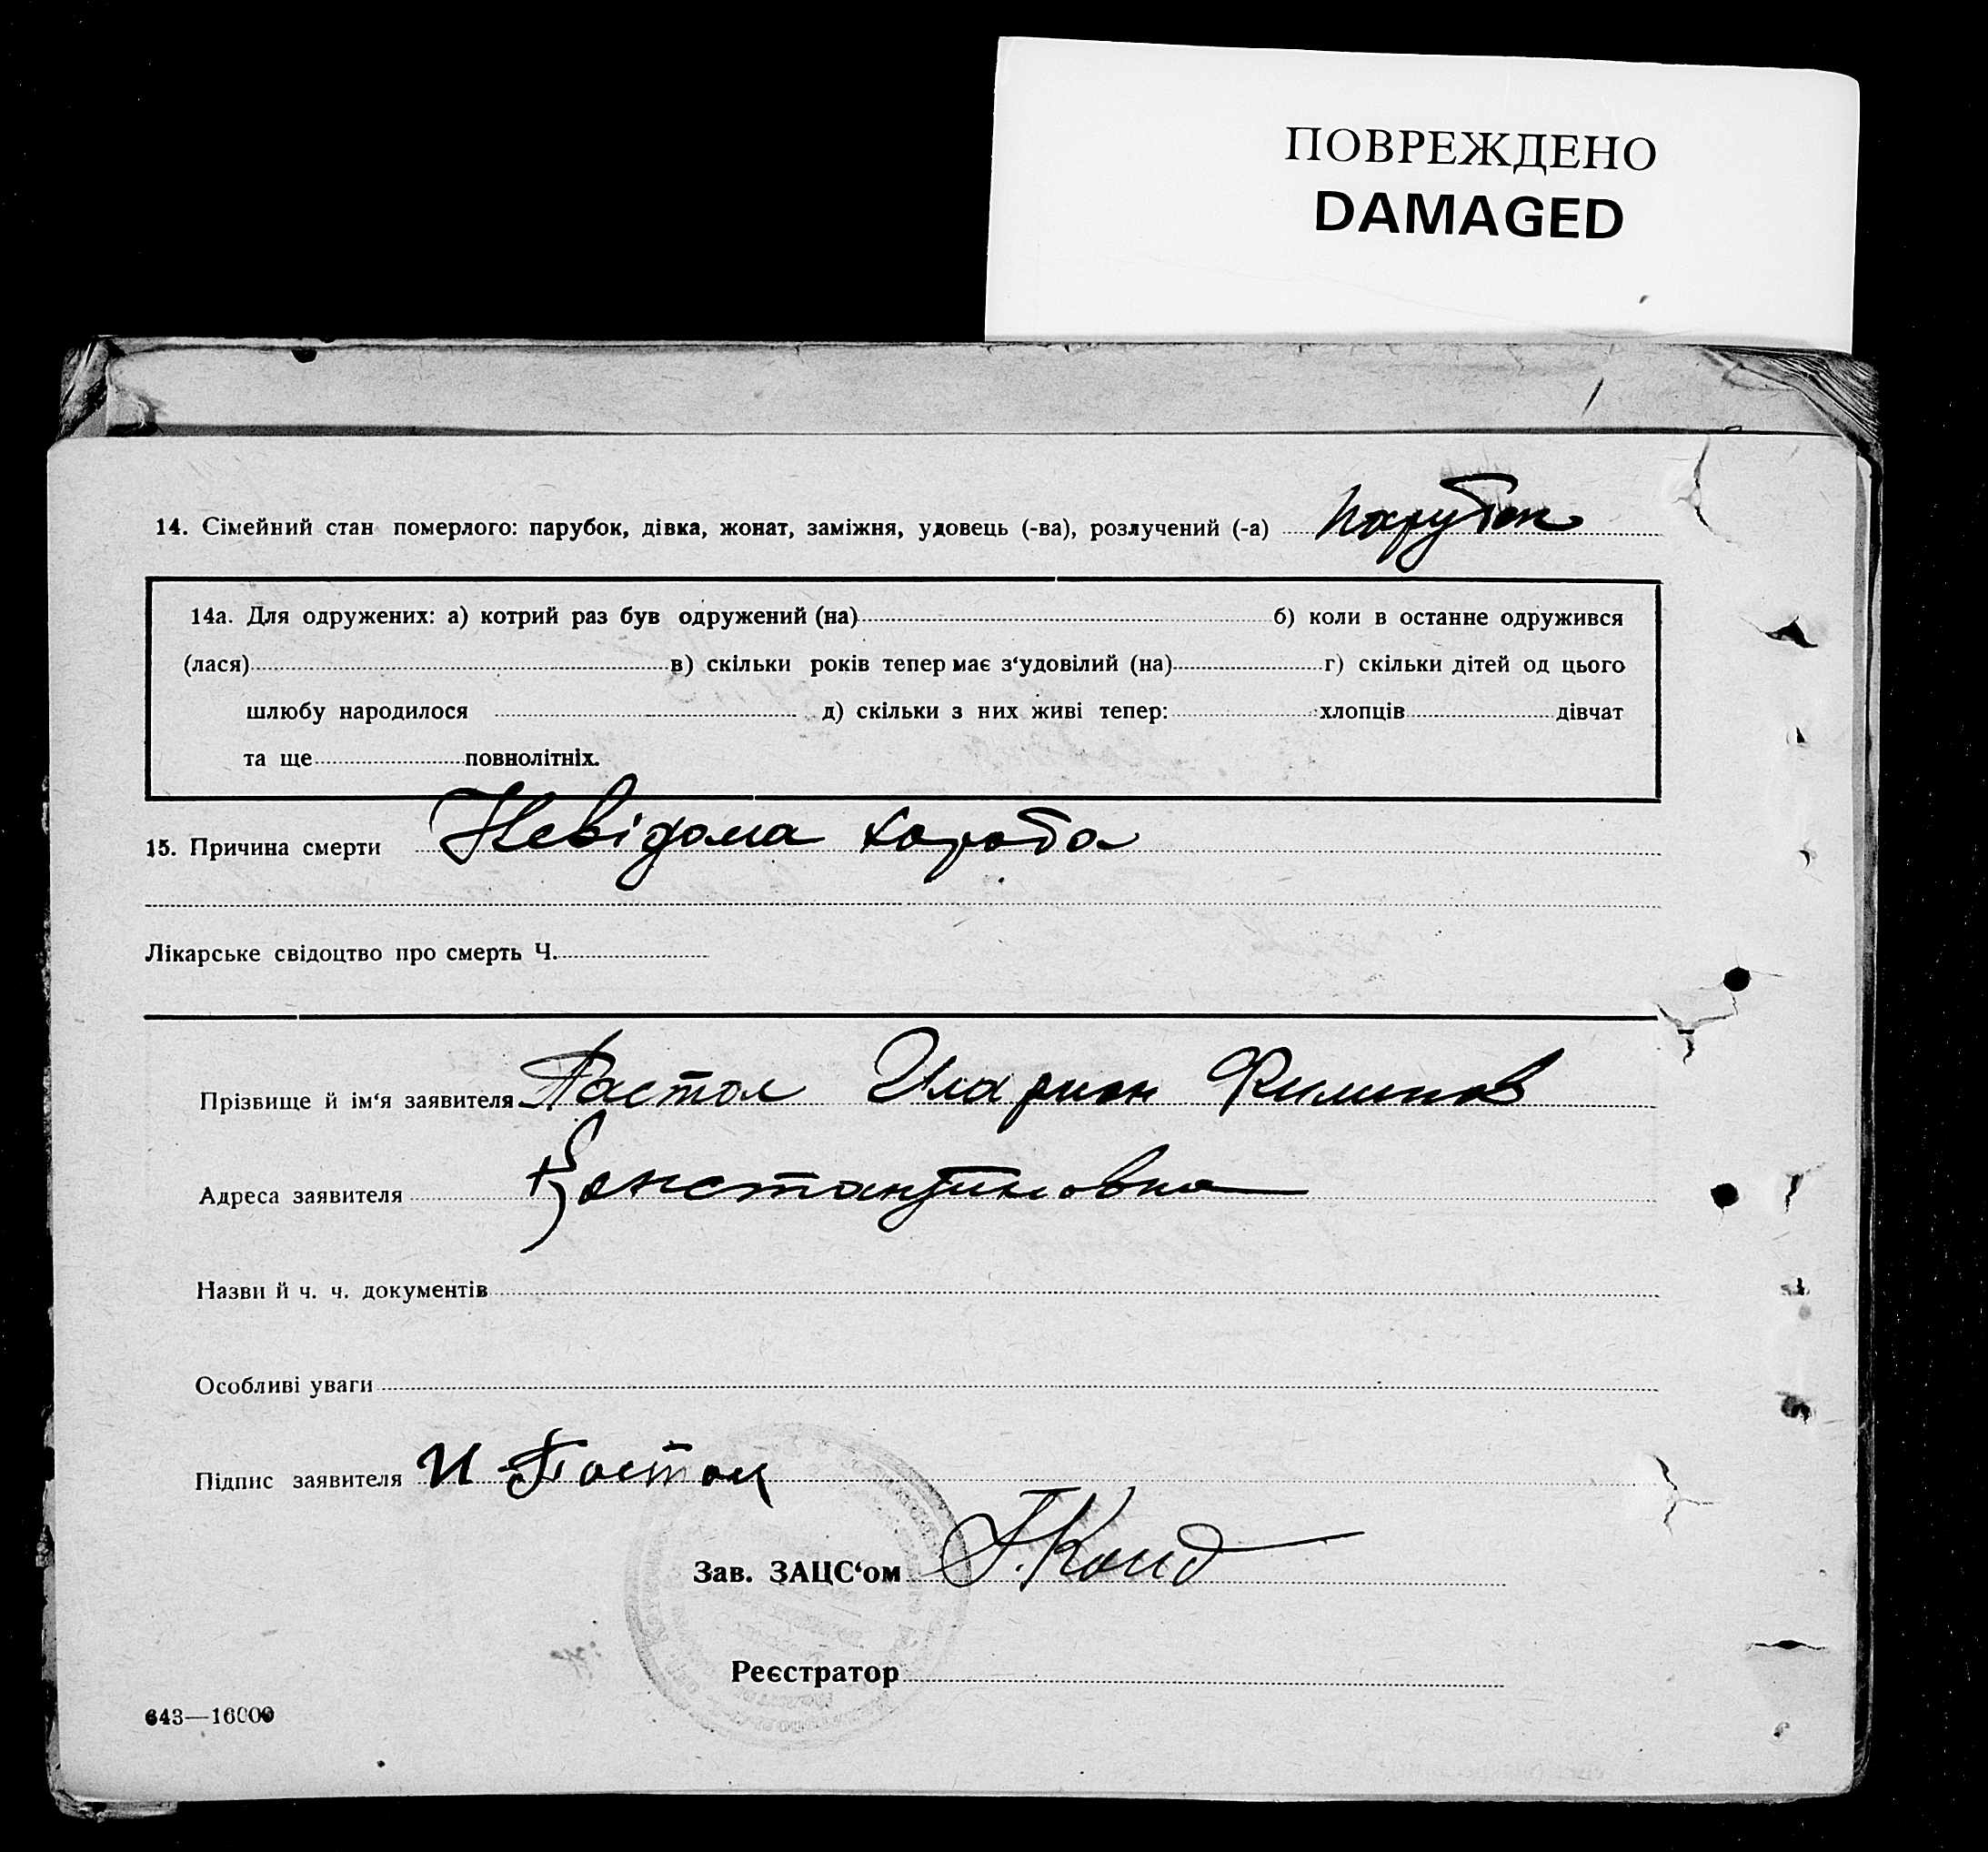 ПОВРЕЖДЕНО
DAMAGED
14. Сімейний стан померлого: парубок, дівка, жонат, заміжня, удовець (-ва), розлучений (-а) парубок
14а. Для одружених: а) котрий раз був одружений (на) б) коли в останне одружився
(лася) в) скільки років тепер має з‘удовілий (на) г) скільки дітей од цього
шлюбу народилося д) скільки з них живі тепер: хлопців дівчат
та ще повнолітніх.
15. Причина смерти Невідома хороба
Лікарське свідоцтво про смерть Ч.
Прізвище й ім‘я заявителя Пастол Иларион Филипов
Адреса заявителя Константиновка
Назви й ч. ч. документів
Особливі уваги
Підпис заявителя И Пастол
Зав. ЗАЦС‘ом
Реєстратор
643—16000